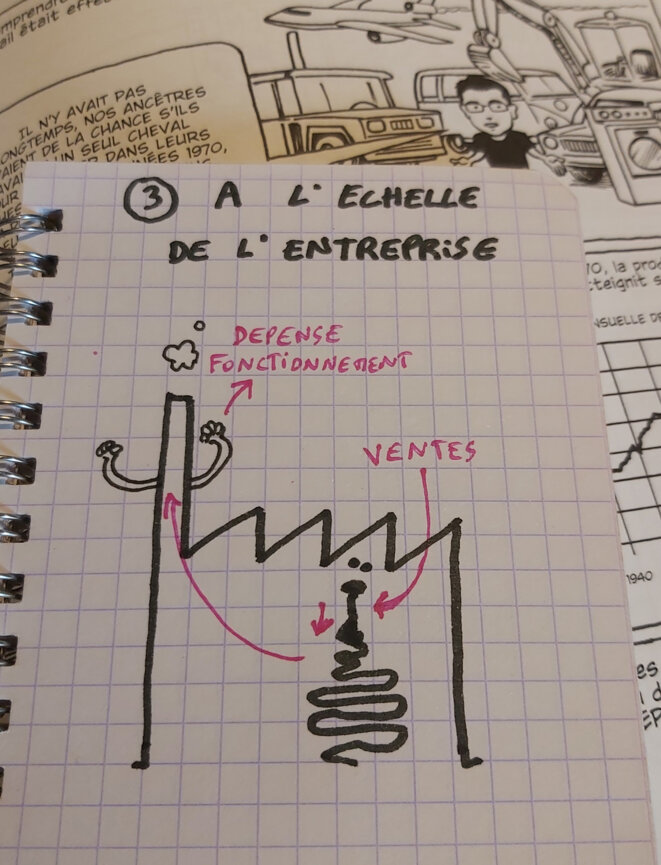 mprendre
ail était effe
IL N'Y AVAIT PAS
LONGTEMPS, NOS ANCÊTRES
AIENT DE LA CHANCE S'ILS
AVAI UN SEUL CHEVAL
DANS LEURS
NÉES 1970,
③ A L'ECHELLE
DE L'ENTREPRISE
DEPENSE
FONCTIONNEMENT
VENTES
70, la prod
tteignit s
NSUELLE DE
1940
es
d
EP